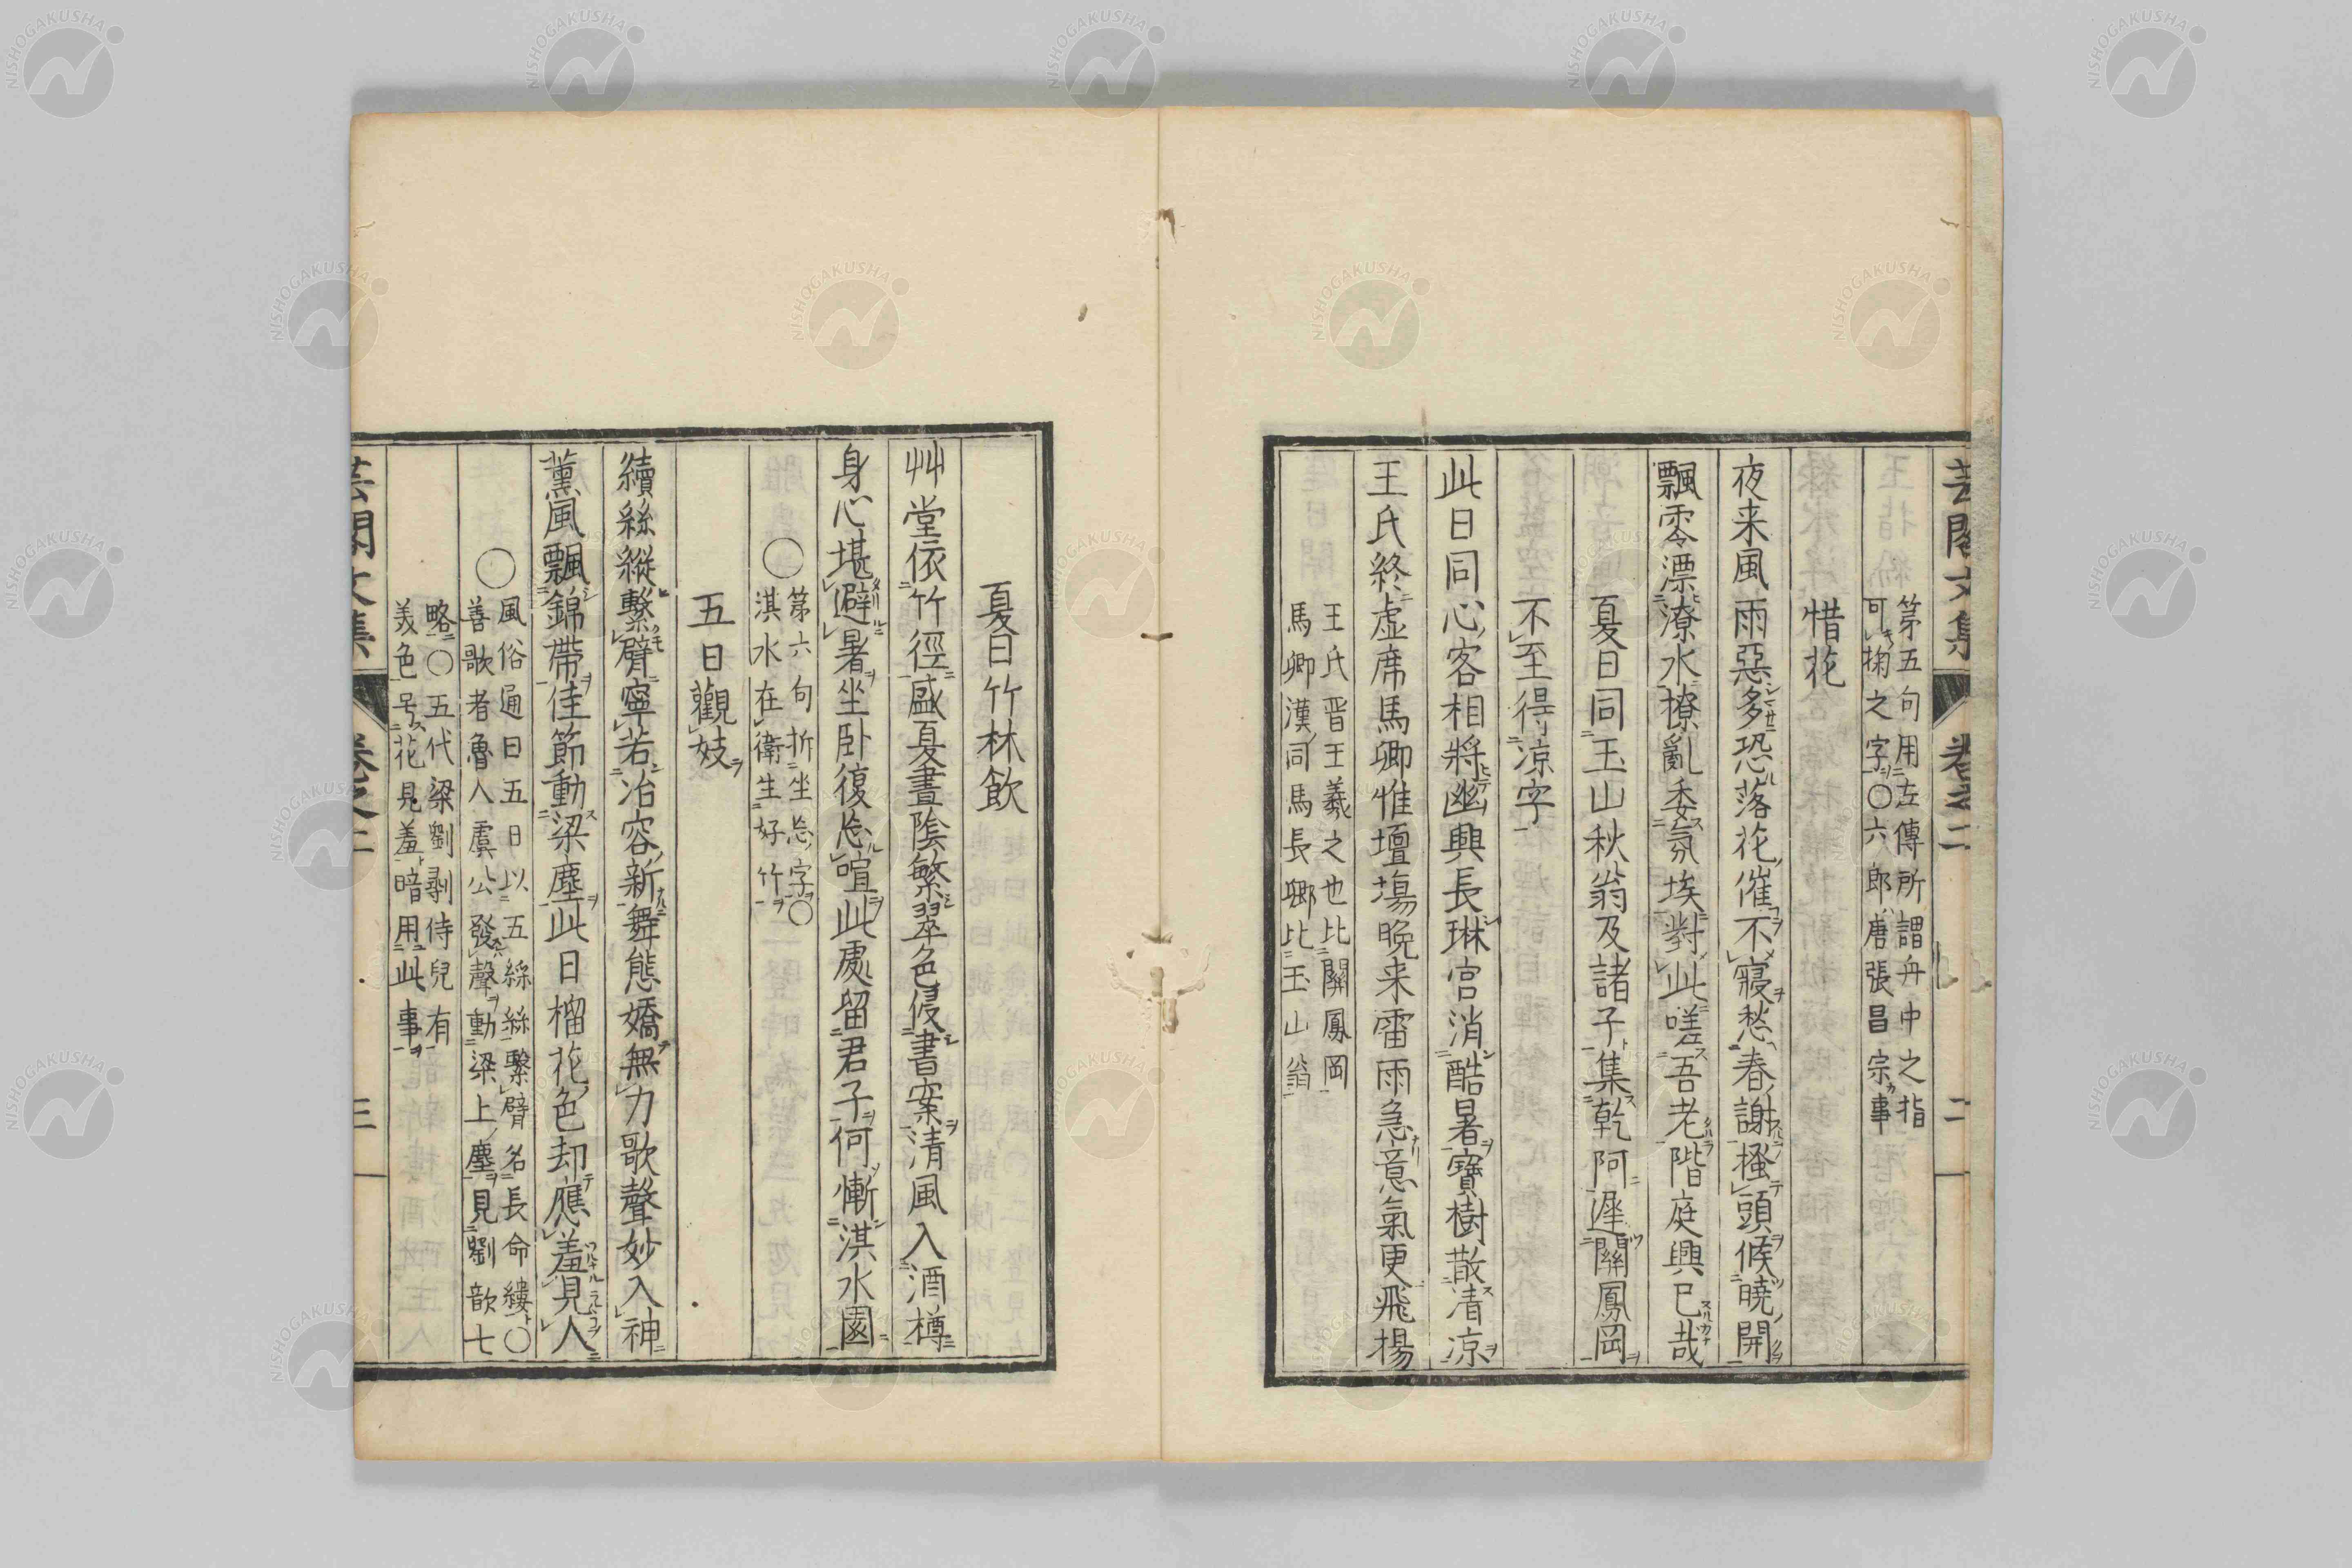 芸閣文集 卷之二 二
第五句用左傳所謂舟中之指
可掬之字○六郎唐張昌宗事
惜花
夜来風雨惡多恐落花催不寢愁春謝搔頭候曉開
飄零漂潦水撩亂委氛埃對此嗟吾老階庭興已哉
夏日同玉山秋翁及諸子集乾阿遲關鳳岡
不至得涼字
此日同心客相將幽興長琳宮消酷暑寶樹散清凉
王氏終虚席馬卿惟壇場晩来雷雨急意氣更飛揚
王氏晋王羲之也比關鳳岡
馬卿漢司馬長卿比玉山翁
夏日竹林飲
艸堂依竹徑盛夏晝陰繁翠色侵書案清風入酒樽
身心堪避暑坐卧復忩喧此處留君子何慚淇水園
○第六句折坐忩字○
淇水在衛生好竹
五日觀妓
續絲縱繫臂寧若冶容新舞態嬌無力歌聲妙入神
薰風飄錦帶佳節動梁塵此日榴花色却應羞見人
○風俗通曰五日以五綵絲繫臂名長命縷○
善歌者魯人虞公發聲動梁上塵見劉歆七
略○五代梁劉剥侍兒有
美色号花見羞暗用此事
芸閣文集 卷之二 三
NISHOGAKUSHA